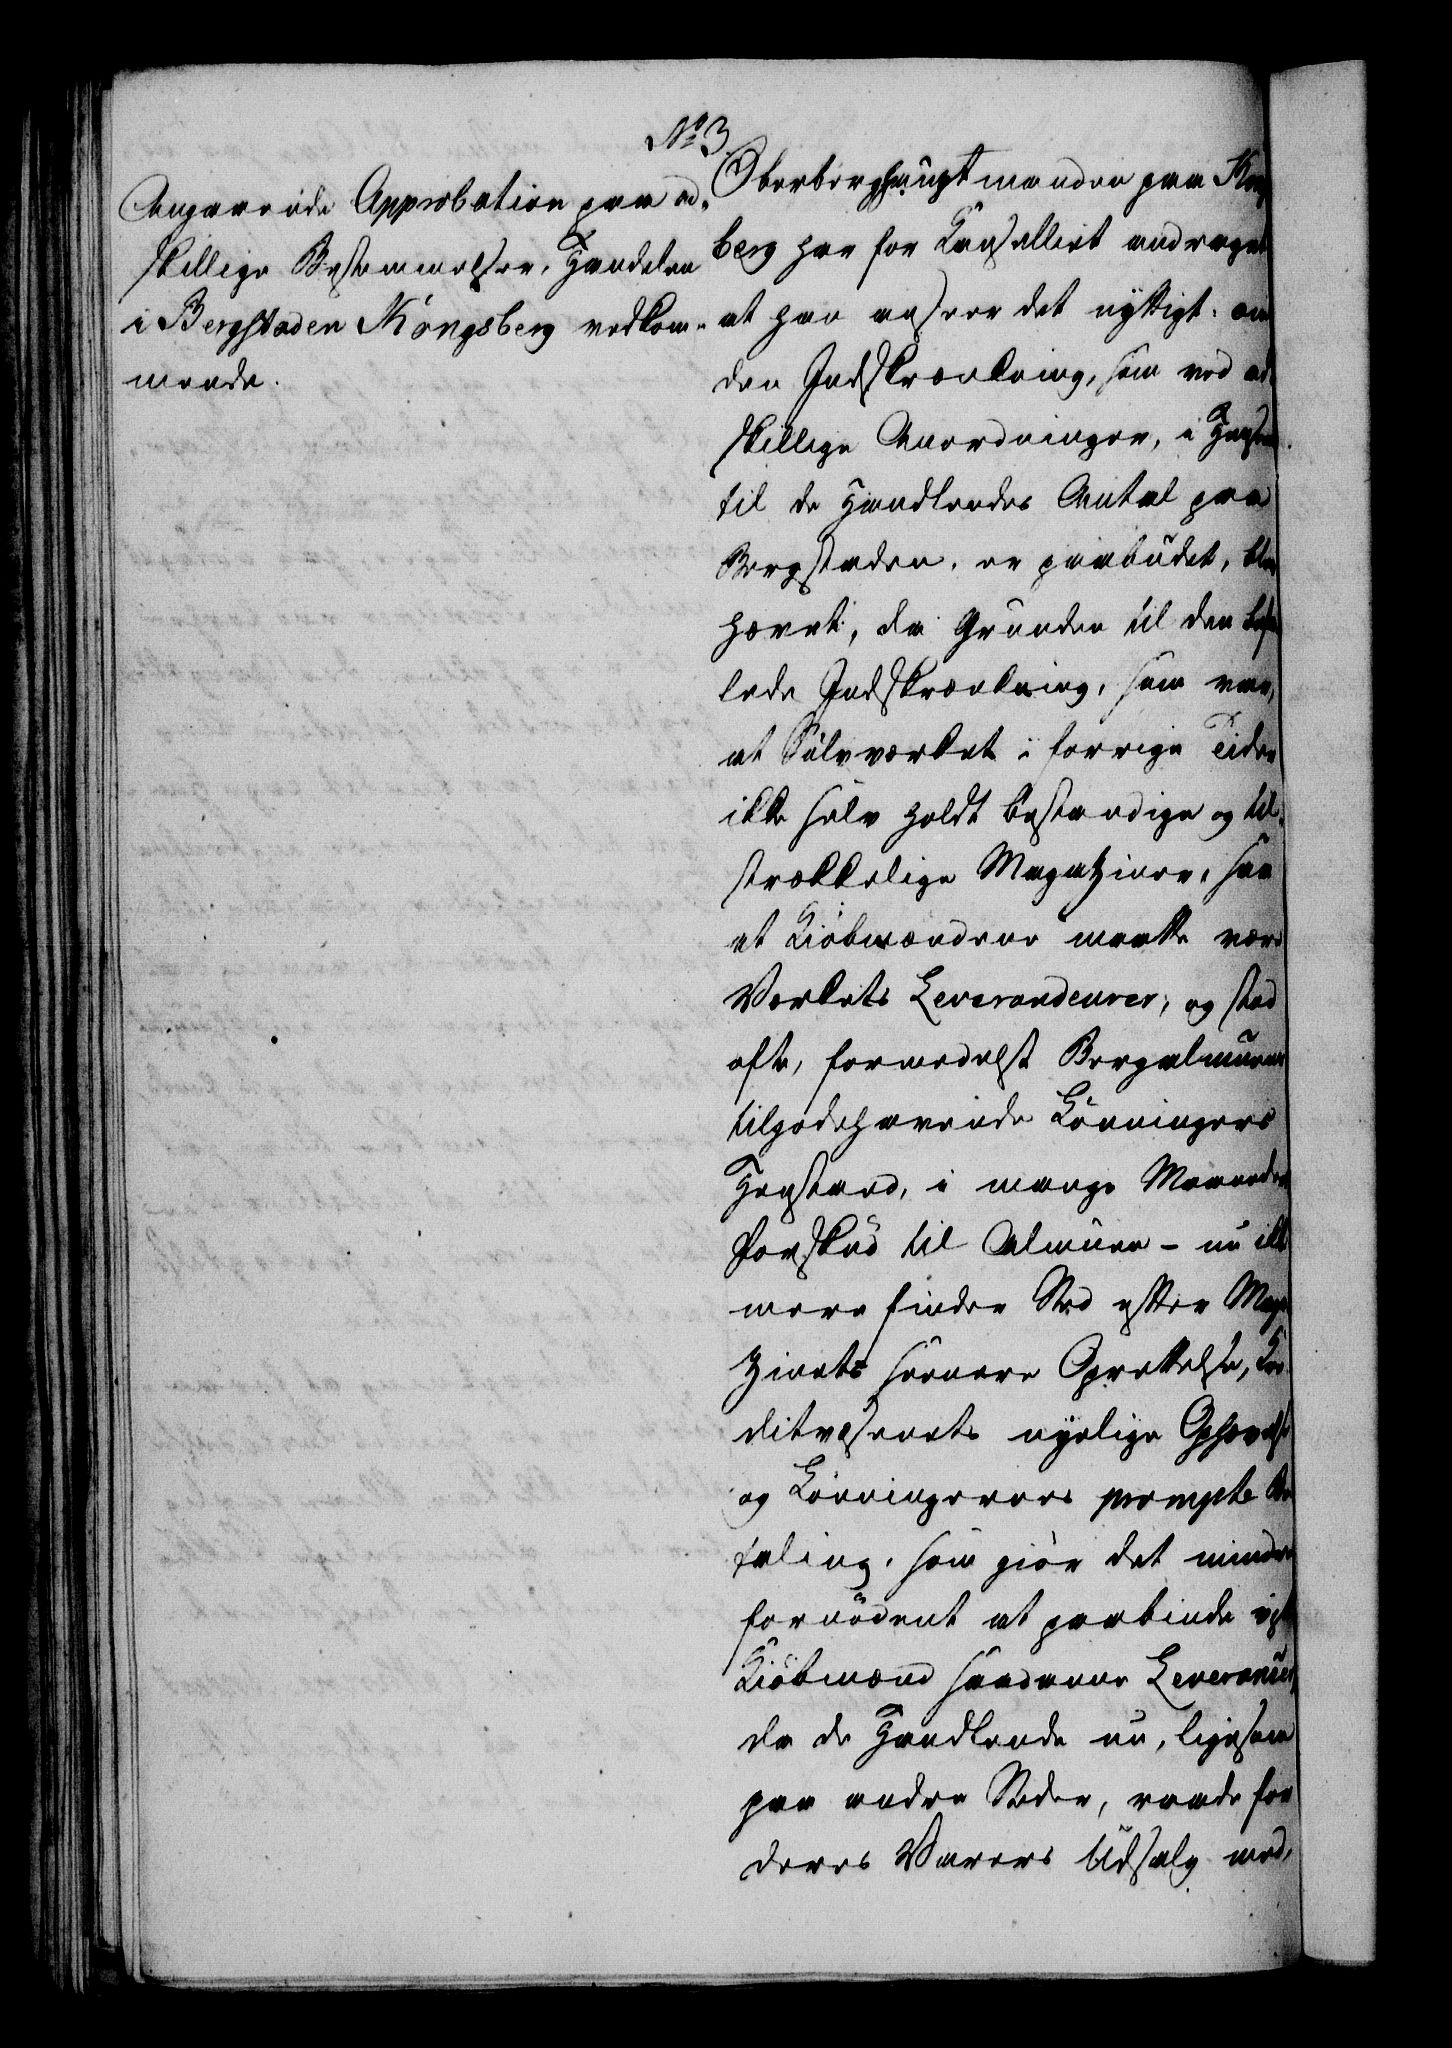 No 3.
Angaaende Approbation paa ad-
skillige Bestemmelser, Handelen
i Bergstaden Kongsberg vedkom-
mende.
Oberberghauptmanden paa Kongs
berg har for Collegiet andraget
at han anseer det nyttigt, om
den Indskrænkning, som ved ad
skillige Anordninger, i Henseende
til de Handlendes Antal paa
Bergstaden, er paabudet, blev
hævet, da Grunden til den befa
lede Indskrænkning, som var,
at Sølvværket i forrige Tider
ikke selv holdt bestandige og til-
strækkelige Magatziner, saa
at Kiøbmændene maatte være
Værkets Leverandeurer, og stod
ofte, formedelst Bergalmuens
tilgodehavende Lønningers
Henstand, i mange Maaneders
Forskud til Almuen - nu ikke
mere finder Sted efter Maga
zinets senere Oprettelse, Cre
ditvæsenets nyelige Ophævelse
og Lønningernes prompte Be
taling, som giør det mindre
fornødent at paabinde visse
Kiøbmænd saadanne Leverancer,
da de Handlende nu, ligesom
paa andre Steder, raade for
deres Varers Udsalg med,